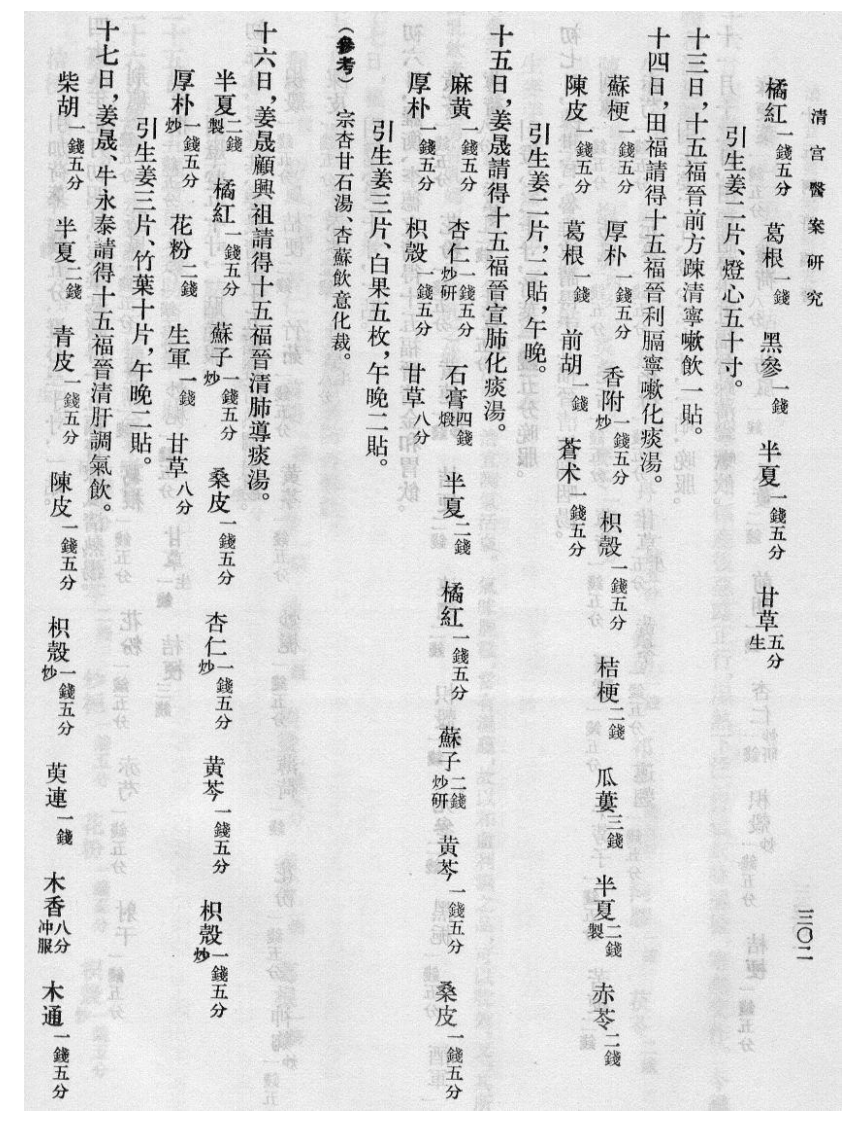 清宮醫案研究
三〇二
橘紅一錢五分 葛根一錢 黑參一錢 半夏一錢五分 甘草五分生
引生姜二片、燈心五十寸。
十三日,十五福晉前方踈清寧嗽飲一貼。
十四日,田福請得十五福晉利膈寧嗽化痰湯。
蘇梗一錢五分 厚朴一錢五分 香附炒一錢五分 枳殼一錢五分 桔梗二錢 瓜蔞三錢 半夏製二錢 赤苓二錢
陳皮一錢五分 葛根一錢 前胡一錢 蒼术一錢五分
引生姜二片,二貼,午晚。
十五日,姜晟請得十五福晉宣肺化痰湯。
麻黄一錢五分 杏仁炒研一錢五分 石膏煅四錢 半夏二錢 橘紅一錢五分 蘇子炒研二錢 黄芩一錢五分 桑皮一錢五分
厚朴一錢五分 枳殼一錢五分 甘草八分
引生姜三片、白果五枚,午晚二貼。
(參考) 宗杏甘石湯、杏蘇飲意化裁。
十六日,姜晟顧興祖請得十五福晉清肺導痰湯。
半夏製二錢 橘紅一錢五分 蘇子炒一錢五分 桑皮一錢五分 杏仁炒一錢五分 黄芩一錢五分 枳殼炒一錢五分
厚朴炒一錢五分 花粉二錢 生軍一錢 甘草八分
引生姜三片、竹葉十片,午晚二貼。
十七日,姜晟、牛永泰請得十五福晉清肝調氣飲。
柴胡一錢五分 半夏二錢 青皮一錢五分 陳皮一錢五分 枳殼炒一錢五分 萸連一錢 木香八分冲服 木通一錢五分